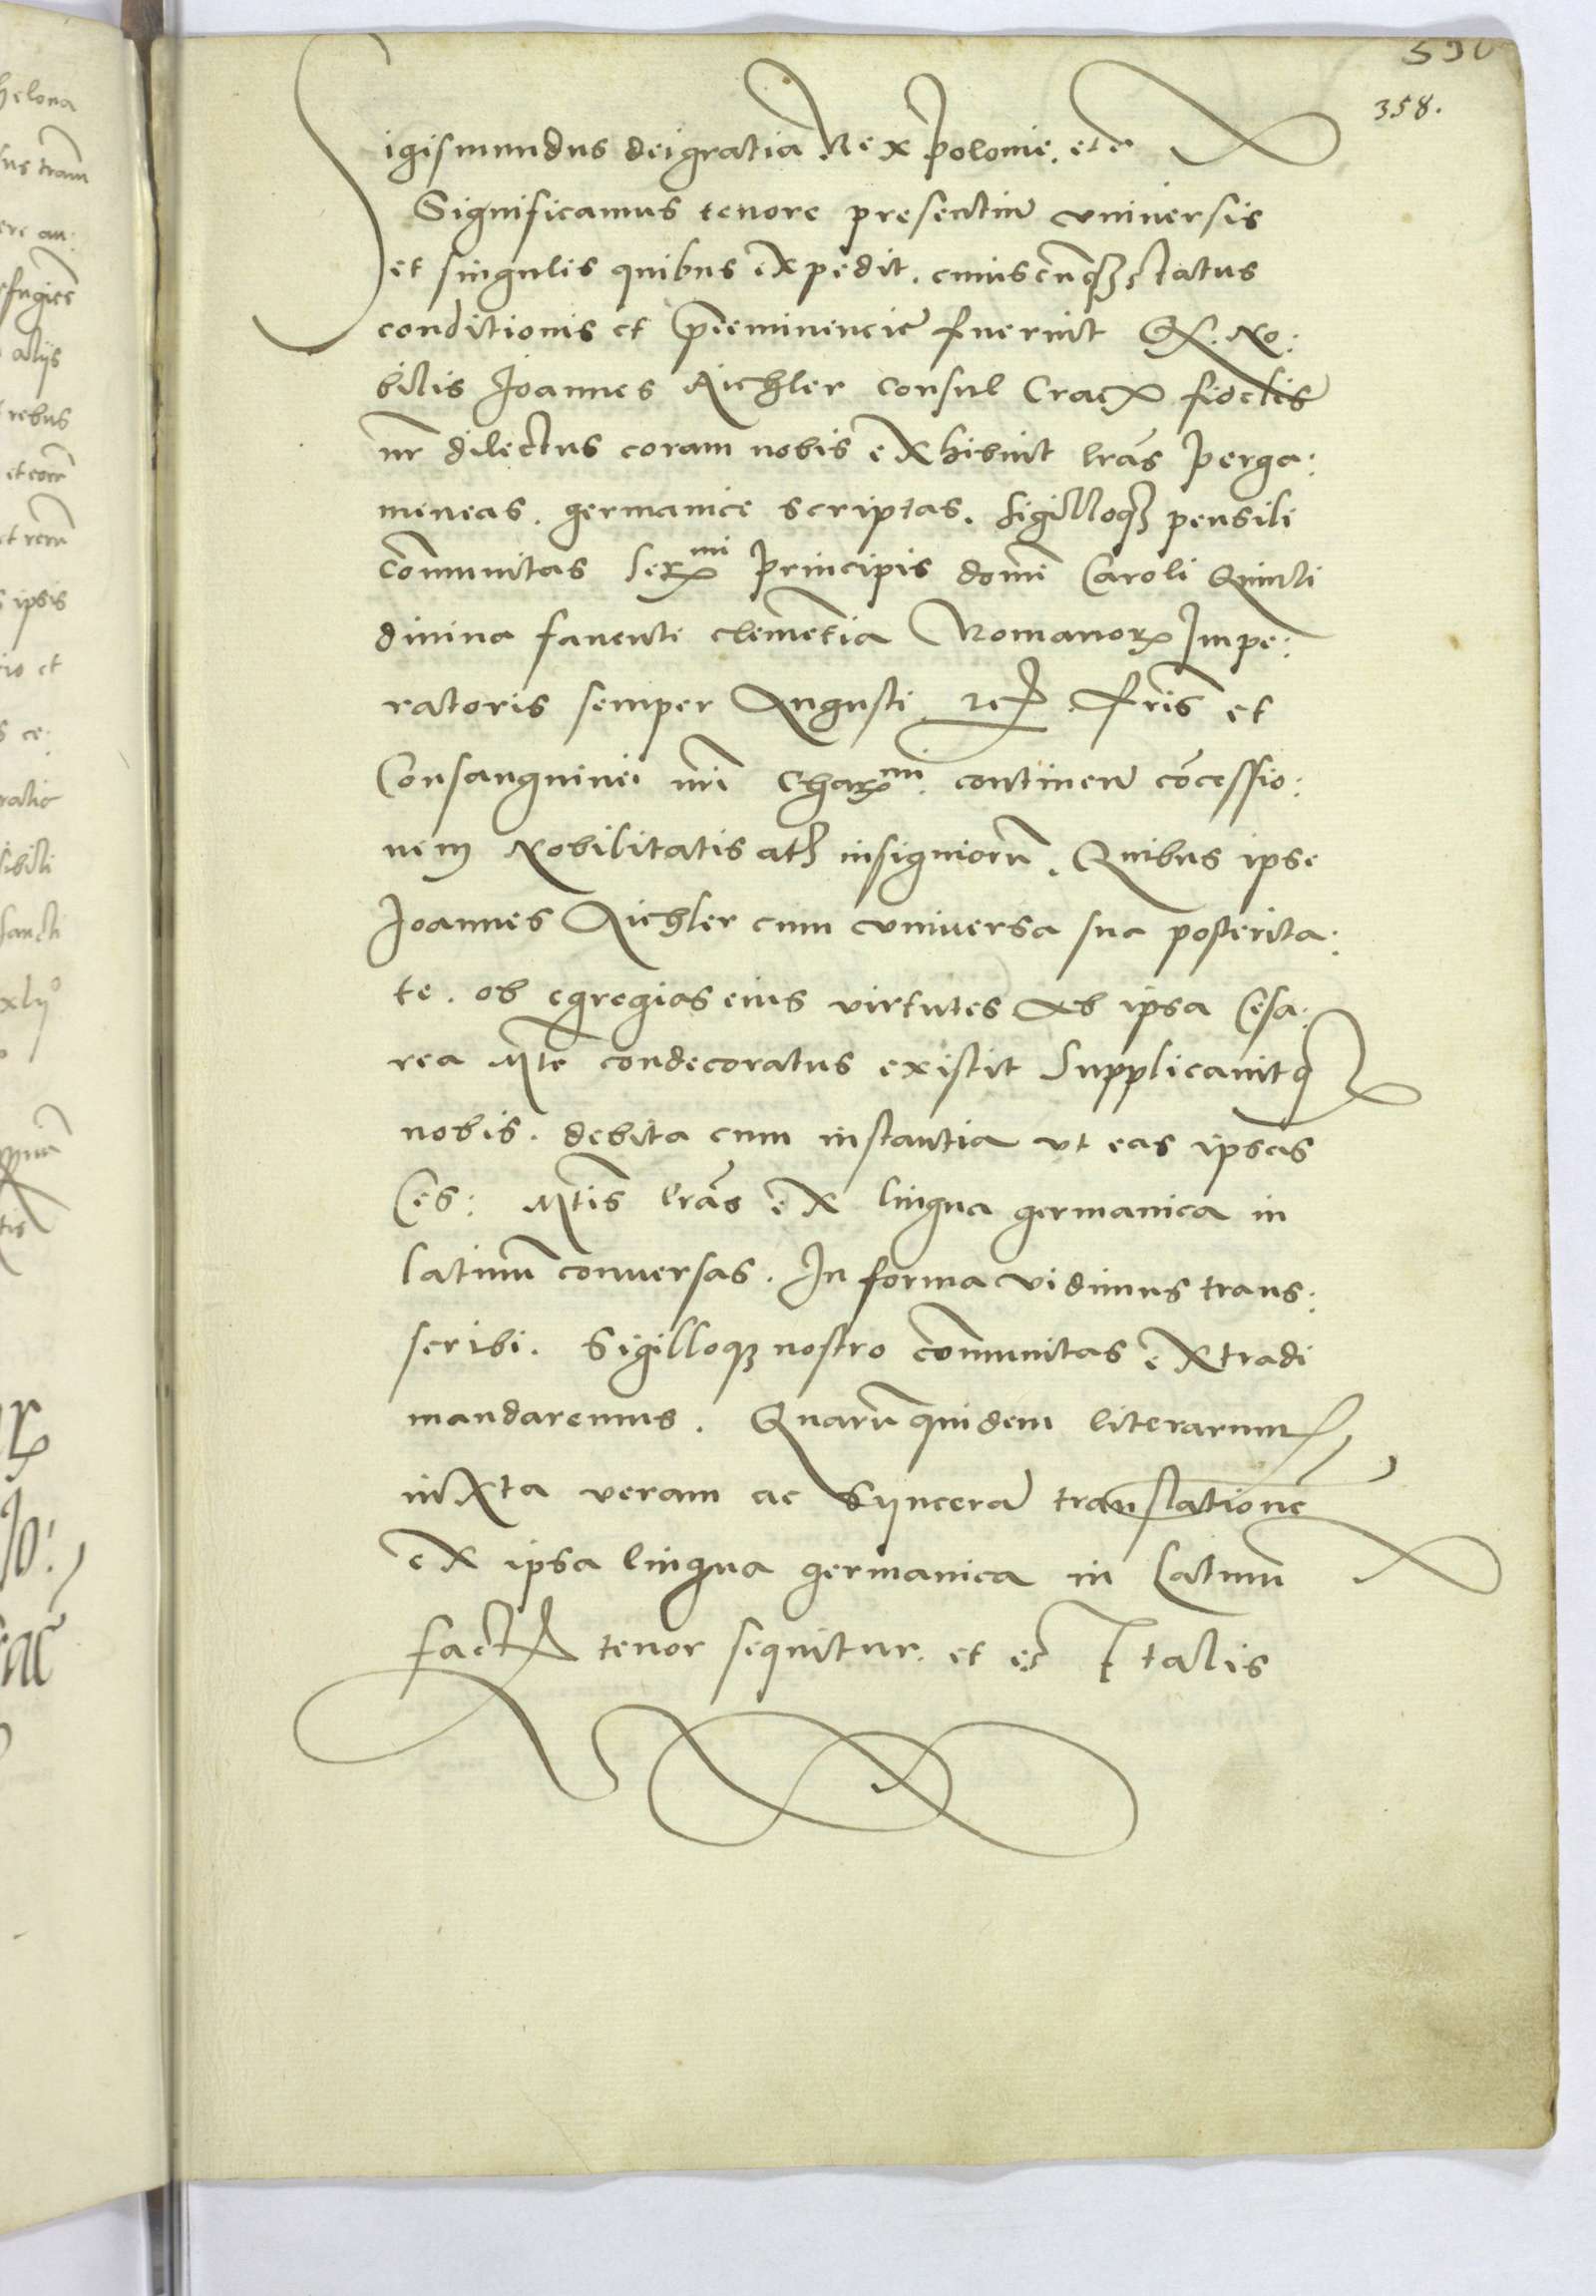 358.
Sigismundus dei gratia Rex Polonie. etc
Significamus tenore presentiu̅ vniuersis
et singulis quibus expedit. cuiuscu̅qꝫ status
conditionis et p̅eminencie fuerint Q. No:
bilis Joannes Aichler Consul Crac̅ fidelis
nr̅ dilectus coram nobis exhibuit lr̅as Perga:
meneas. germanice scriptas. Sigilloqꝫ pensili
co̅munitas Ser^mi Principis domi̅ Caroli Quinti
diuina fauente cleme̅tia Romanorꝝ Impe:
ratoris semper Augusti etc Fr̅is et
Consanguinei nr̅i Char^mi. continen̅ co̅cessio:
nem Nobilitatis atqꝫ insignioru̅. Quibus ipse
Joannes Aichler cum vniuersa sua posterita:
te. ob egregias eius virtutes ab ipsa Cesa:
rea Mte̅ condecoratus existit Supplicauitqꝫ
nobis. debita cum instantia vt eas ipsas
Ces: Mtis̅ lr̅as ex lingua germanica in
latinu̅ conuersas. In forma vidimus trans:
scribi. Sigilloqꝫ nostro co̅munitas extradi
mandaremus. Quaru̅ quidem literarum
iuxta veram ac Synceram translatione̅
ex ipsa lingua germanica in Latinu̅
fact̅ tenor sequitur. et est talis